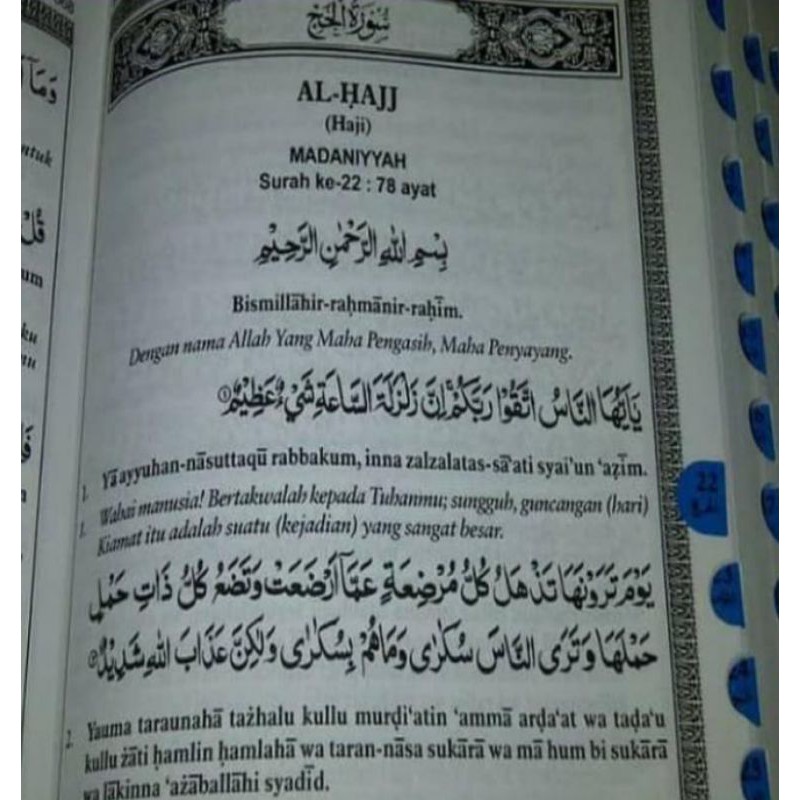 سُورَةُ الْحَجِّ
AL-ḤAJJ
(Haji)
MADANIYYAH
Surah ke-22 : 78 ayat
بِسْمِ اللّٰهِ الرَّحْمٰنِ الرَّحِيْمِ
Bismillāhir-raḥmānir-raḥīm.
Dengan nama Allah Yang Maha Pengasih, Maha Penyayang.
يٰٓاَيُّهَا النَّاسُ اتَّقُوْا رَبَّكُمْ ۚ اِنَّ زَلْزَلَةَ السَّاعَةِ شَيْءٌ عَظِيْمٌ ①
1. Yā ayyuhan-nāsuttaqū rabbakum, inna zalzalatas-sā‘ati syai'un ‘aẓīm.
1. Wahai manusia! Bertakwalah kepada Tuhanmu; sungguh, guncangan (hari)
Kiamat itu adalah suatu (kejadian) yang sangat besar.
يَوْمَ تَرَوْنَهَا تَذْهَلُ كُلُّ مُرْضِعَةٍ عَمَّآ اَرْضَعَتْ وَتَضَعُ كُلُّ ذَاتِ حَمْلٍ
حَمْلَهَا وَتَرَى النَّاسَ سُكٰرٰى وَمَا هُمْ بِسُكٰرٰى وَلٰكِنَّ عَذَابَ اللّٰهِ شَدِيْدٌ ②
2. Yauma taraunahā tażhalu kullu murḍi‘atin ‘ammā arḍa‘at wa taḍa‘u
kullu żāti ḥamlin ḥamlahā wa taran-nāsa sukārā wa mā hum bi sukārā
wa lākinna ‘ażāballāhi syadīd.
22
الحج